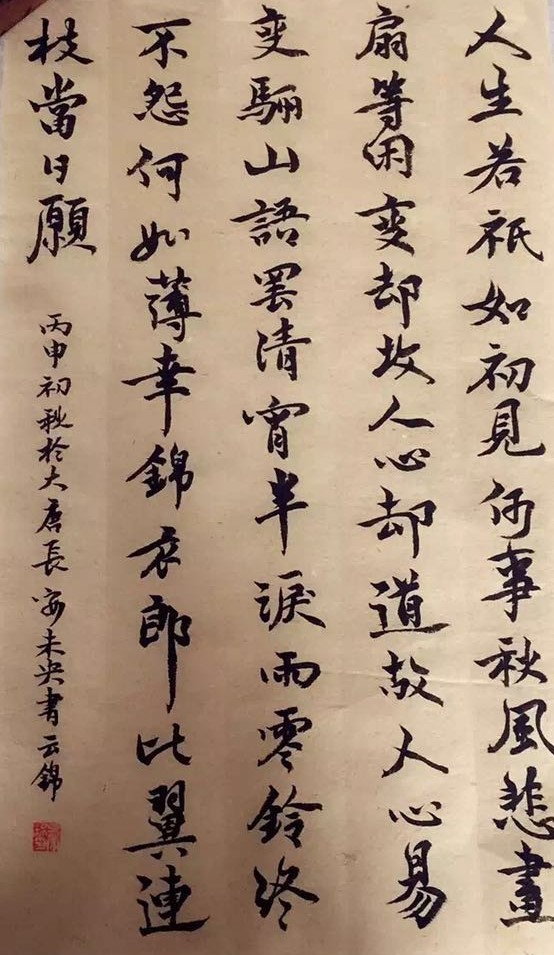 人生若祇如初見何事秋風悲畫
扇等閑變却故人心却道故人心易
變驪山語罷清宵半淚雨零鈴終
不怨何如薄幸錦衣郎比翼連
枝當日願
丙申初秋於大唐長安未央書云錦